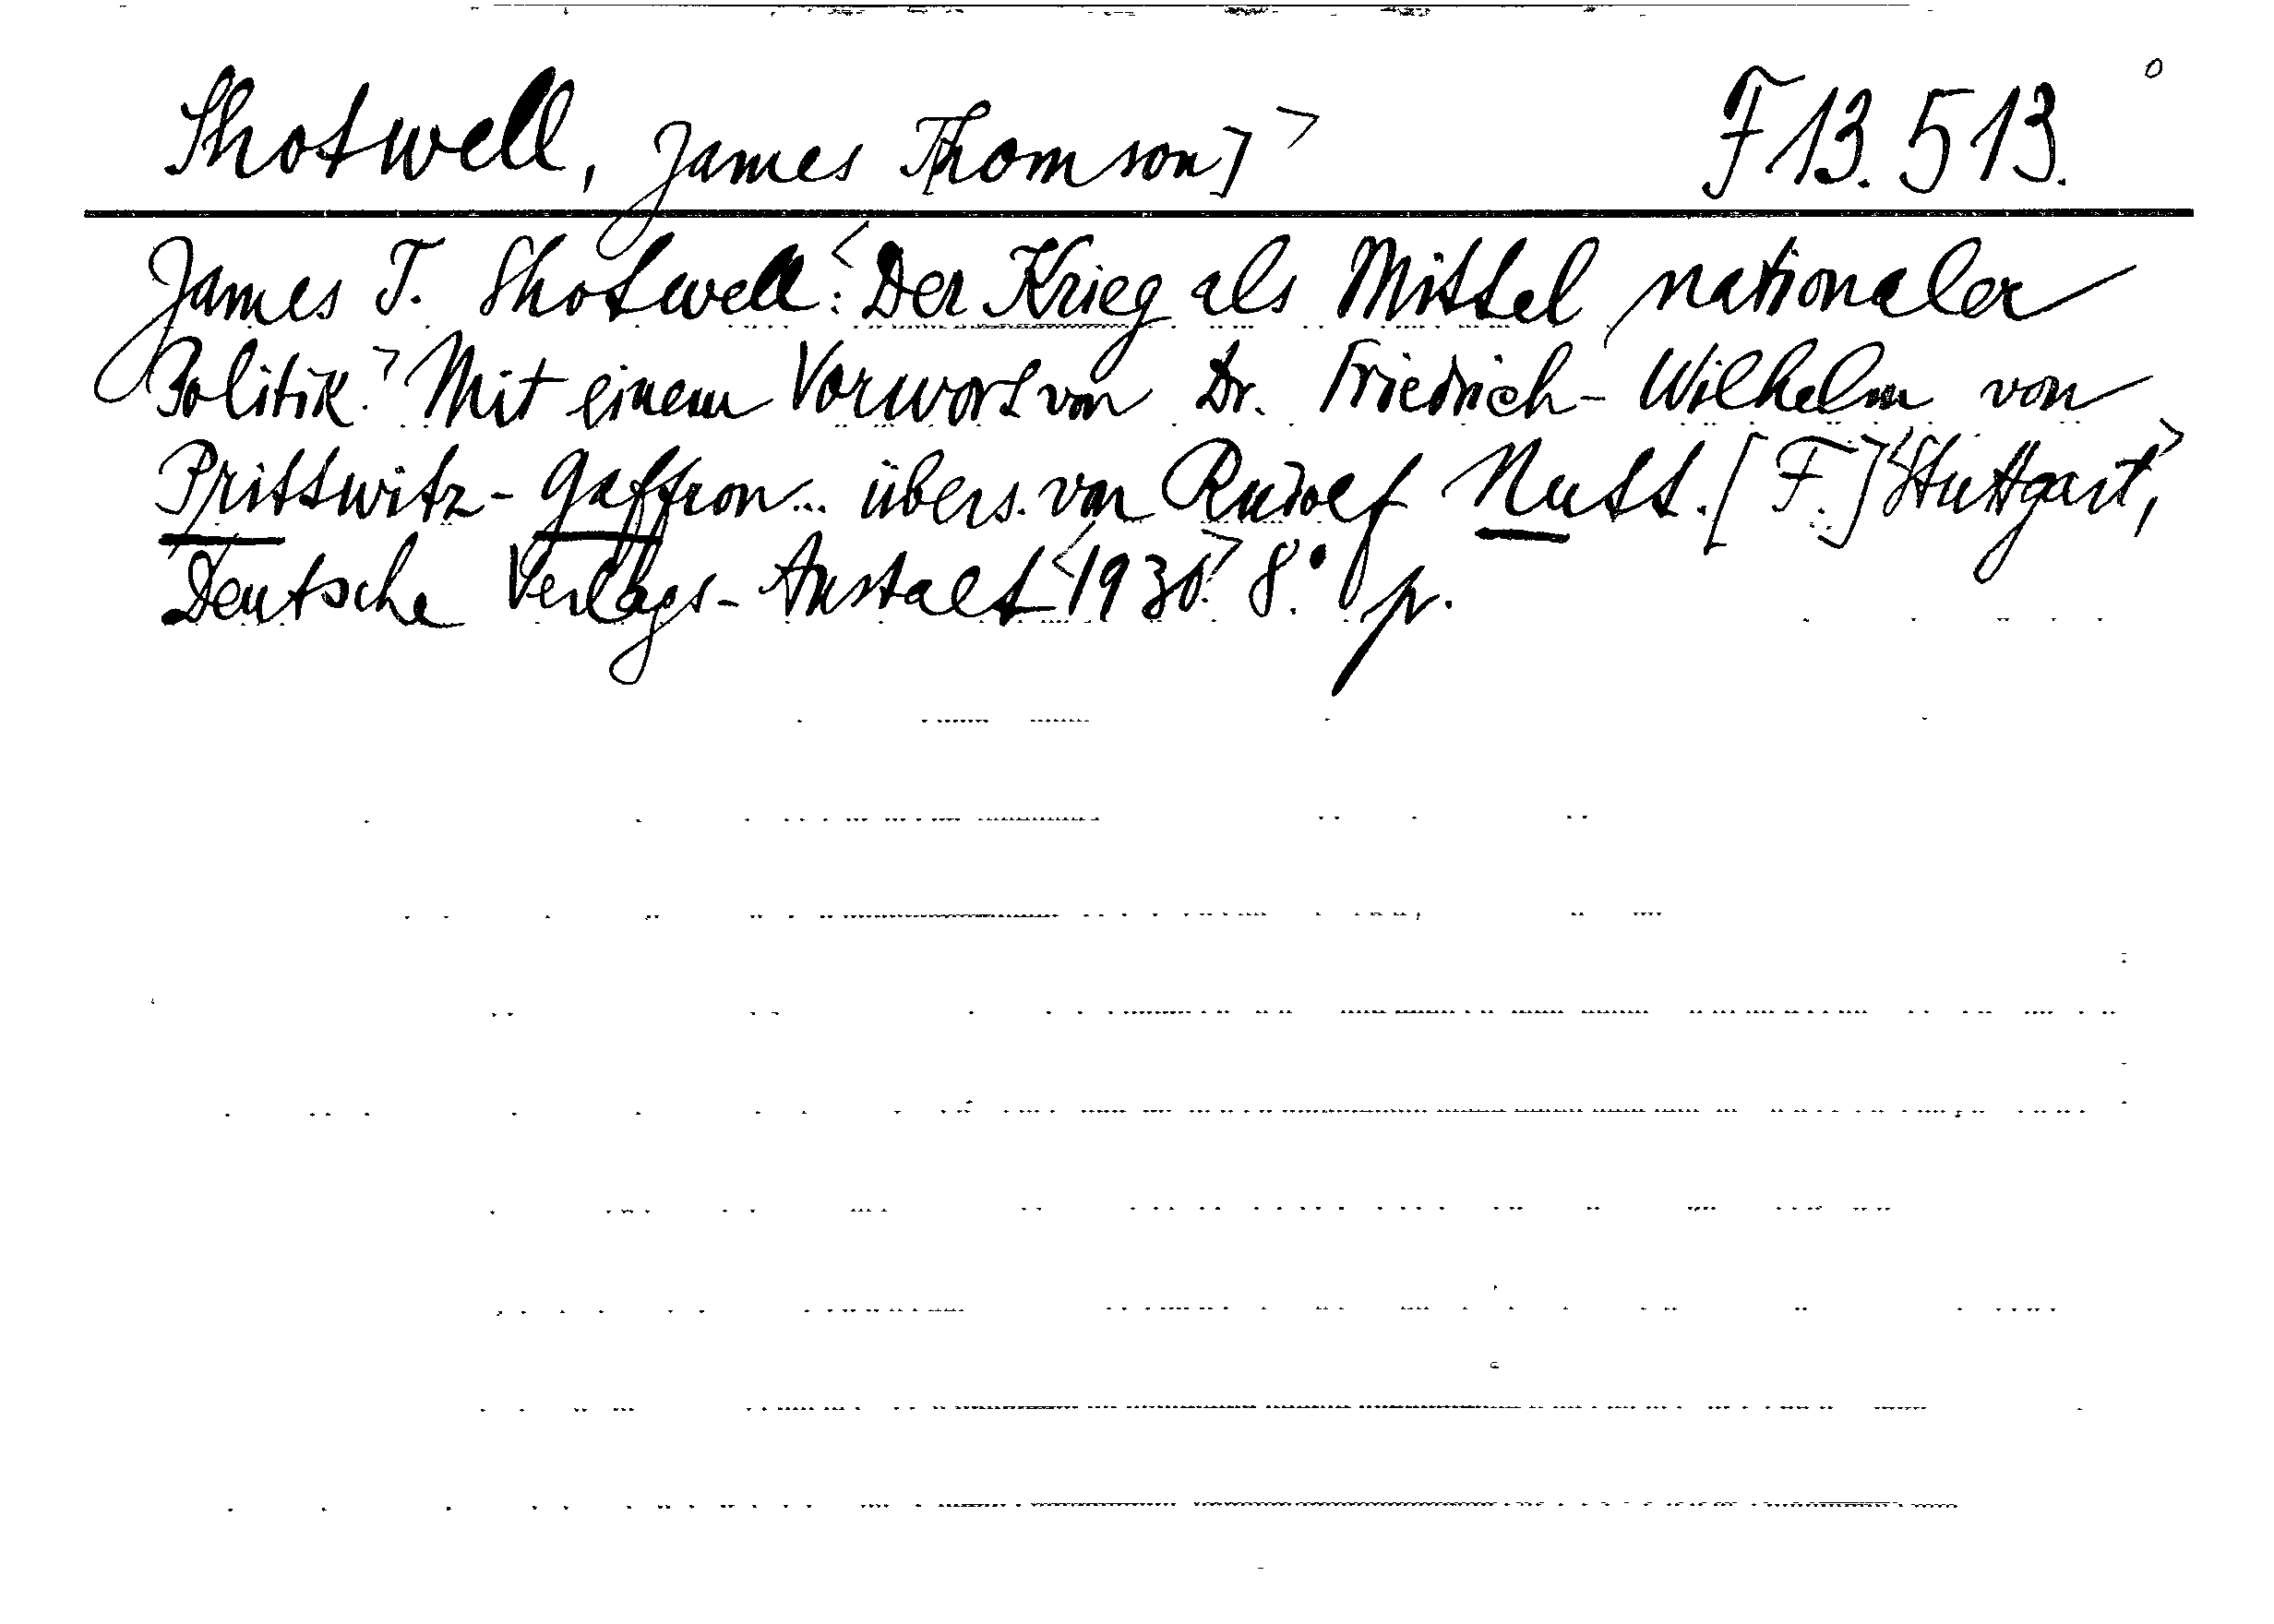 Shotwell, James T[homson]> F 13.513.
James T. Shotwell:<Der Krieg als Mittel nationaler
Politik.> Mit einem Vorwort von Dr. Friedrich-Wilhelm von
Prittwitz-Gaffron... übers. von Rudolf Nutt. [F.] <Stuttgart,>
Deutsche Verlags-Anstalt <1930.> 8.° p.